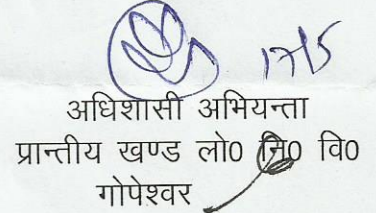 17/5
अधिशासी अभियन्ता
प्रान्तीय खण्ड लो0 नि0 वि0
गोपेश्वर